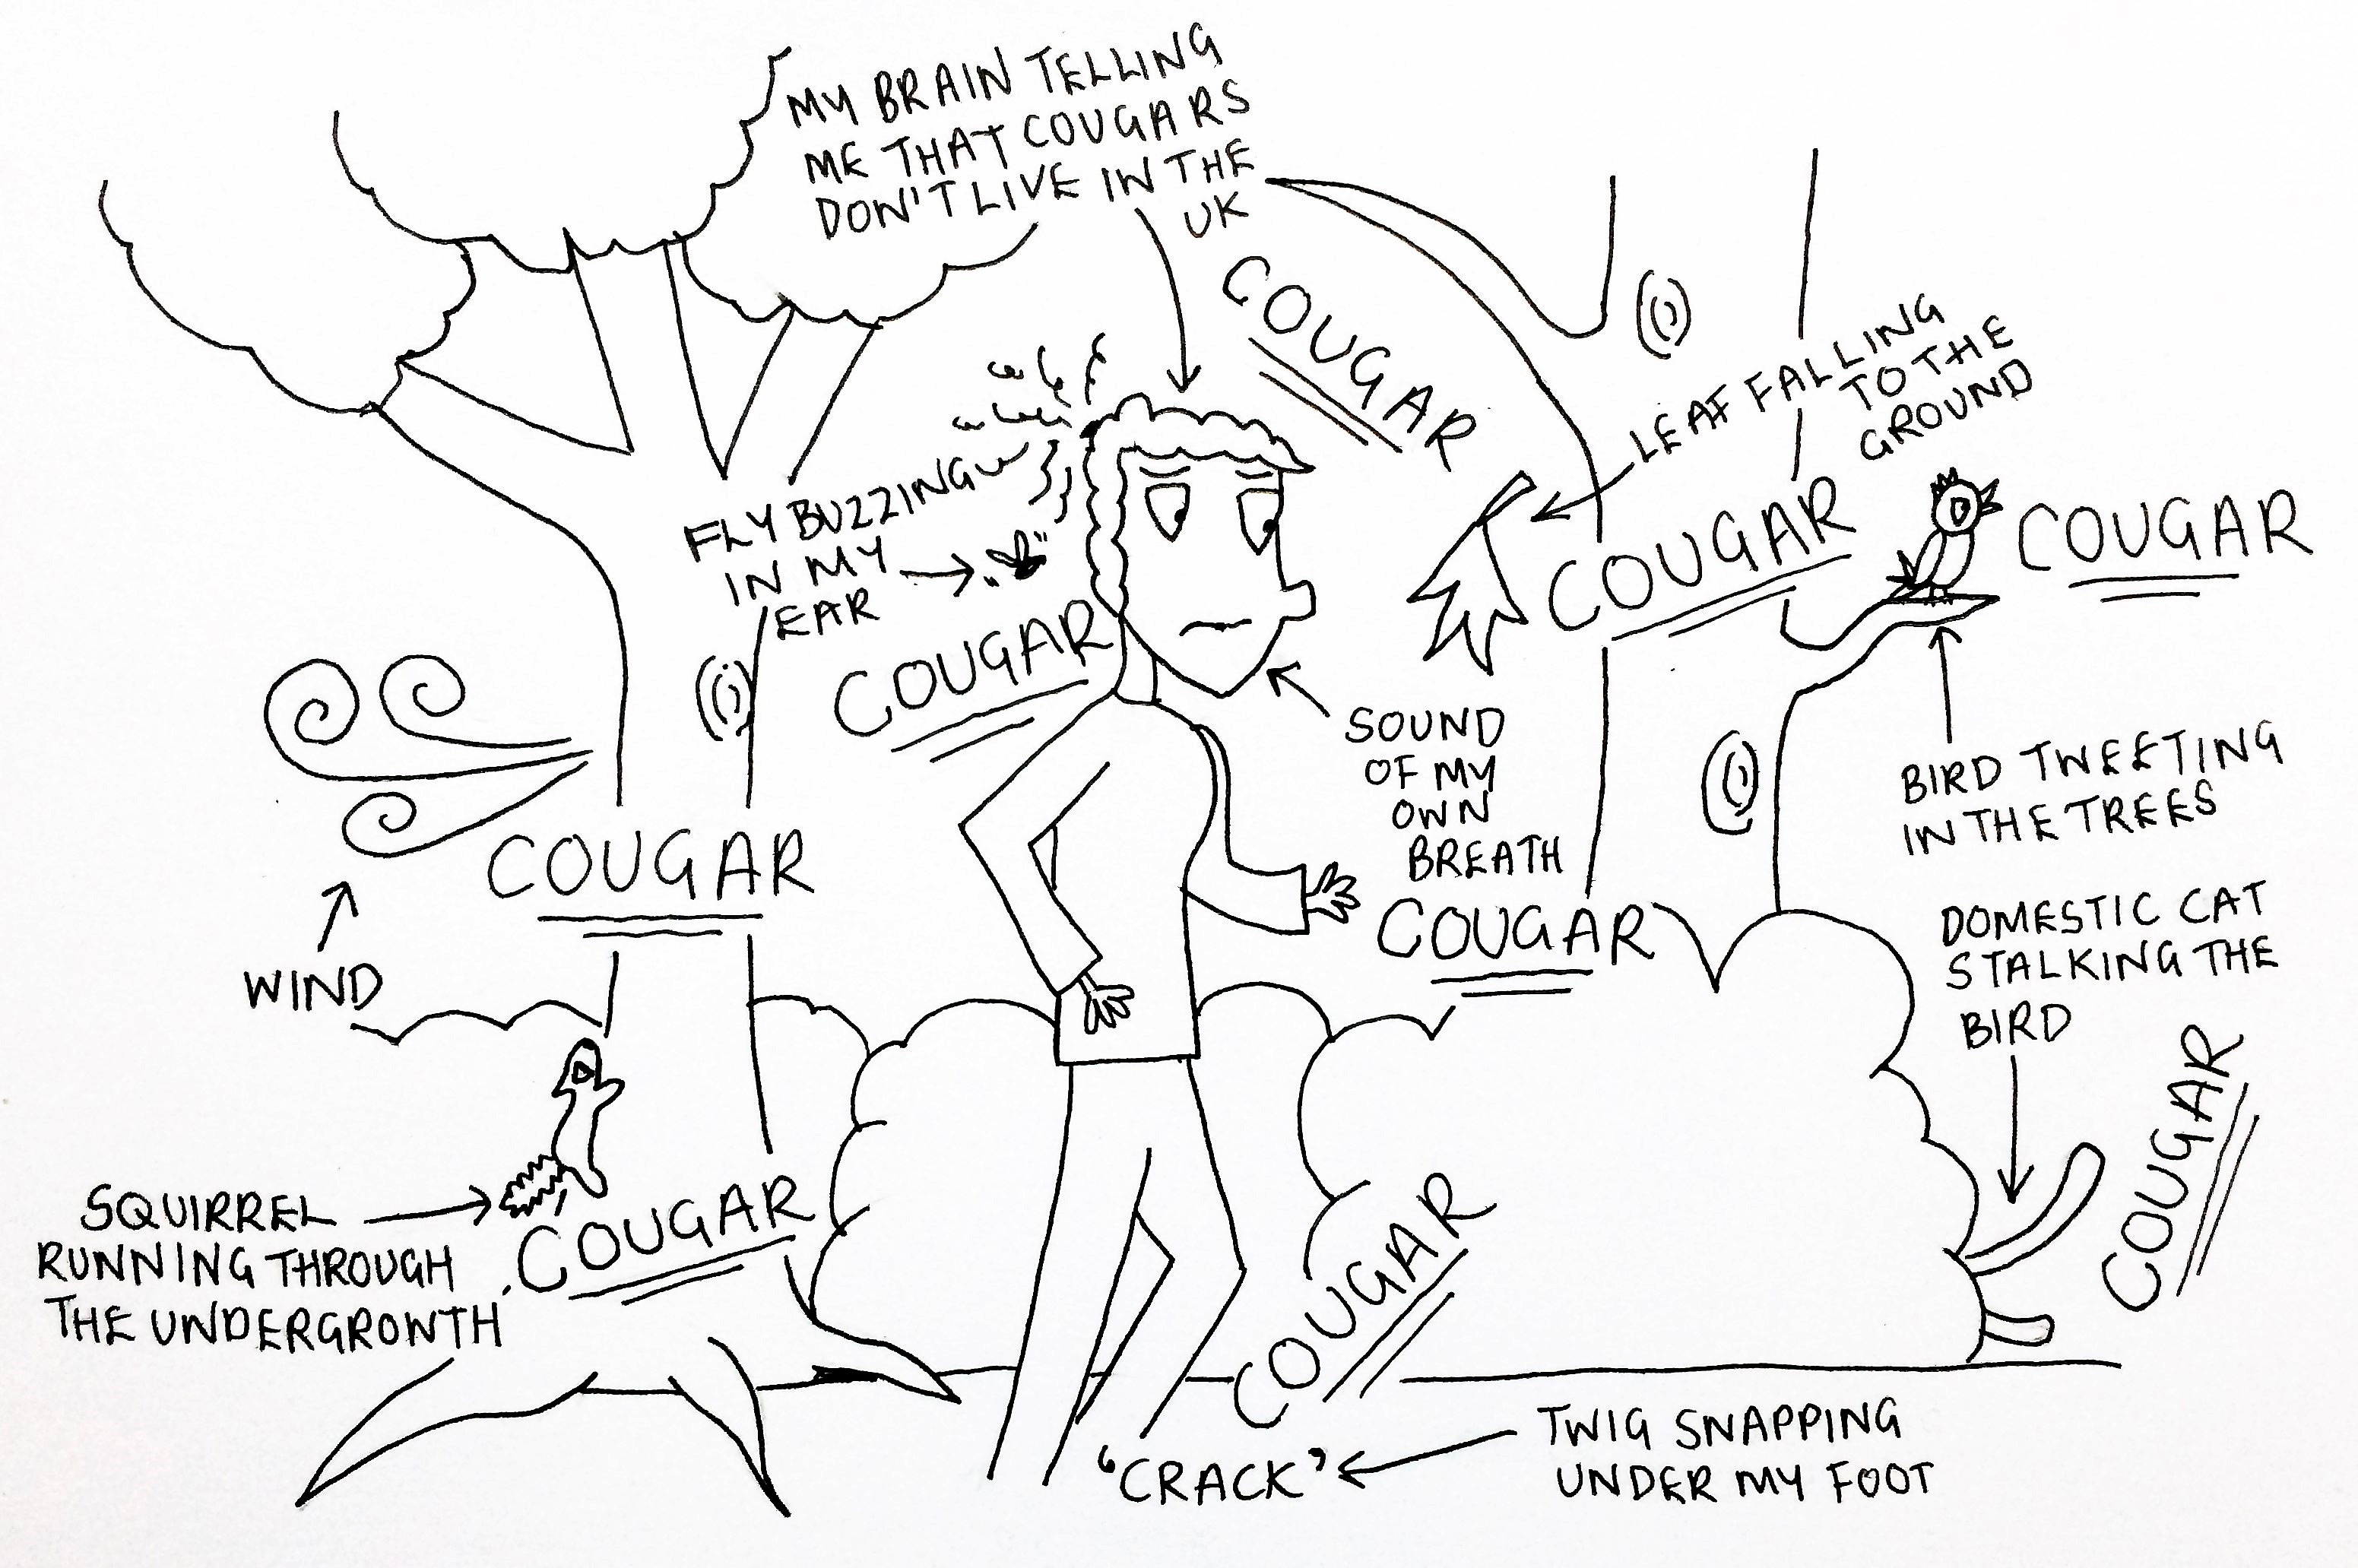 MY BRAIN TELLING
ME THAT COUGARS
DON'T LIVE IN THE
UK
COUGAR
LEAF FALLING
TO THE
GROUND
FLY BUZZING
IN MY
EAR
COUGAR
COUGAR
COUGAR
SOUND
OF MY
OWN
BREATH
COUGAR
BIRD TWEETING
IN THE TREES
COUGAR
WIND
DOMESTIC CAT
STALKING THE
BIRD
COUGAR
SQUIRREL
RUNNING THROUGH
THE UNDERGROWTH
COUGAR
COUGAR
'CRACK'
TWIG SNAPPING
UNDER MY FOOT